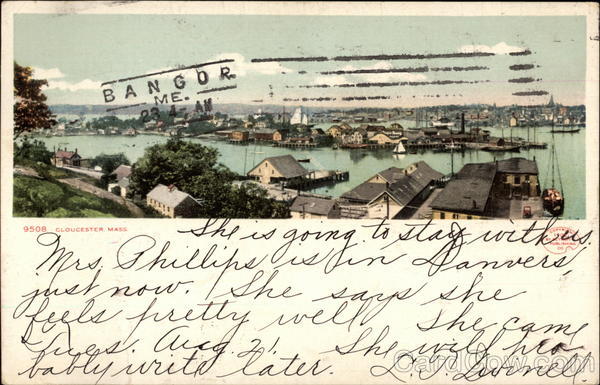 BANGOR
ME.
9508 GLOUCESTER, MASS.
She is going to stay with us.
Mrs. Phillips is in Danvers,
just now. She says she
feels pretty well. She came
Tues. Aug. 21. She will pro
bably write later. L. C.
CardCow.com